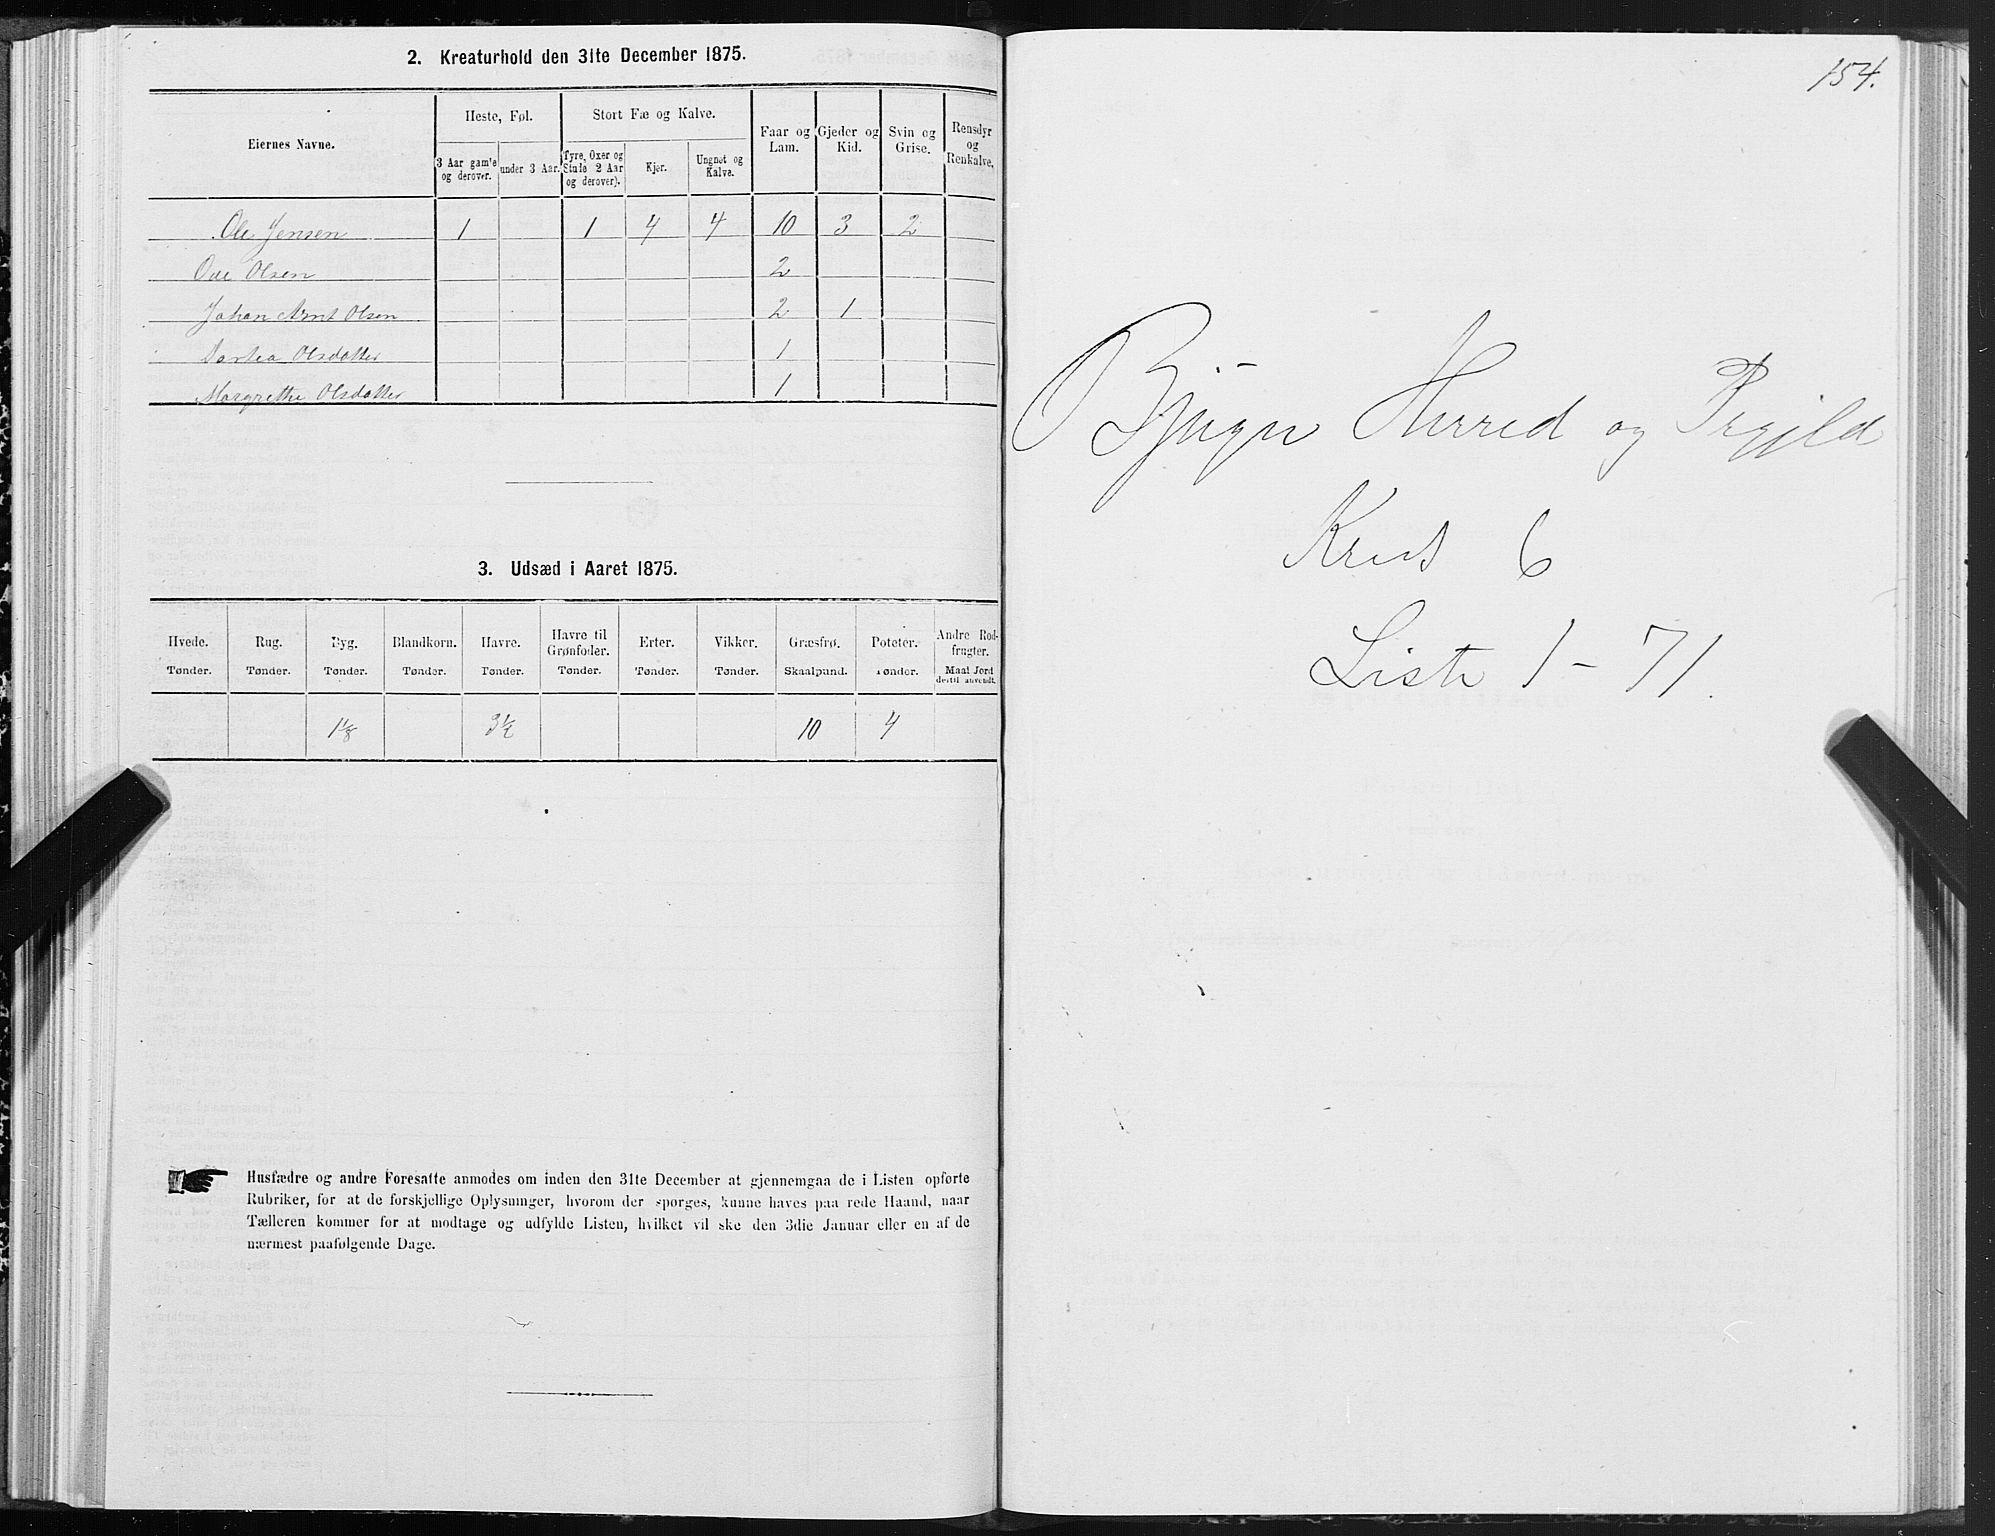 2. Kreaturhold den 31te December 1875.
Eiernes Navne. | Heste, Føl. | Stort Fæ og Kalve. | Faar og Lam. | Gjeder og Kid. | Svin og Grise. | Rensdyr og Renkalve.
3 Aar gam'e og derover. | under 3 Aar. | Tyre, Oxer og Stude 2 Aar og derover). | Kjør. | Ungnøt og Kalve.
Ole Jensen 1 1 4 4 10 3 2
Ove Olsen 2
Johan Arnt Olsen 2 1
Olsdatter 1
Margrethe Olsdatter 1
3. Udsæd i Aaret 1875.
Hvede. | Rug. | Byg. | Blandkorn. | Havre. | Havre til Grønfoder. | Erter. | Vikker. | Græsfrø. | Poteter. | Andre Rodfrugter.
Tønder. | Tønder. | Tønder. | Tønder. | Tønder. | Tønder. | Tønder. | Tønder. | Skaalpund. | Tønder. | Maal Jord dertil anvendt.
1⅛ 3½ 10 4
Husfædre og andre Foresatte anmodes om inden den 31te December at gjennemgaa de i Listen opførte
Rubriker, for at de forskjellige Oplysninger, hvorom der spørges, kunne haves paa rede Haand, naar
Tælleren kommer for at modtage og udfylde Listen, hvilket vil ske den 3die Januar eller en af de
nærmest paafølgende Dage.
154.
Bjugn Herred og Prgjld
Kreds 6
Liste 1-71.